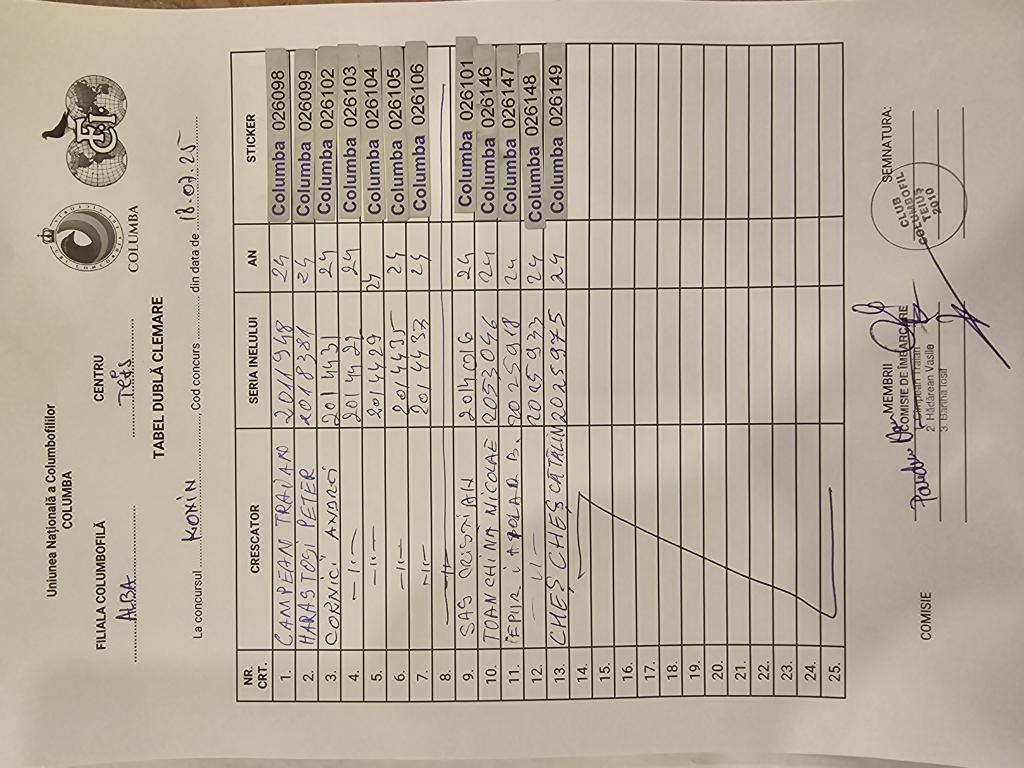 Uniunea Națională a Columbofililor
COLUMBA
COLUMBA
FILIALA COLUMBOFILĂ CENTRU
ALBA Teiuș
TABEL DUBLĂ CLEMARE
La concursul KONIN, Cod concurs din data de 18.07.25
NR. CRT. CRESCATOR SERIA INELULUI AN STICKER
1. CAMPEAN TRAIAN 2011948 24 Columba 026098
2. HARASTOSI PETER 2018381 24 Columba 026099
3. CORNICI ANDREI 2014431 24 Columba 026102
4. —11— 2014427 24 Columba 026103
5. —11— 2014429 24 Columba 026104
6. —11— 2014435 24 Columba 026105
7. —11— 2014437 24 Columba 026106
8. —11—
9. SAS CRISTIAN 2014016 24 Columba 026101
10. TOANCHINA NICOLAE 2053046 24 Columba 026146
11. IEPURI 2025918 24 Columba 026147
12. —11— 2025933 24 Columba 026148
13. CHEȘCHEȘ CĂTĂLIN 2025975 24 Columba 026149
14.
15.
16.
17.
18.
19.
20.
21.
22.
23.
24.
25.
COMISIE MEMBRII SEMNATURA:
COMISIE DE ÎMBARCARE
1. Câmpean Traian
2. Hădărean Vasile
3. Bartha Iosif
CLUB
COLUMBOFIL
TEIUȘ
2010